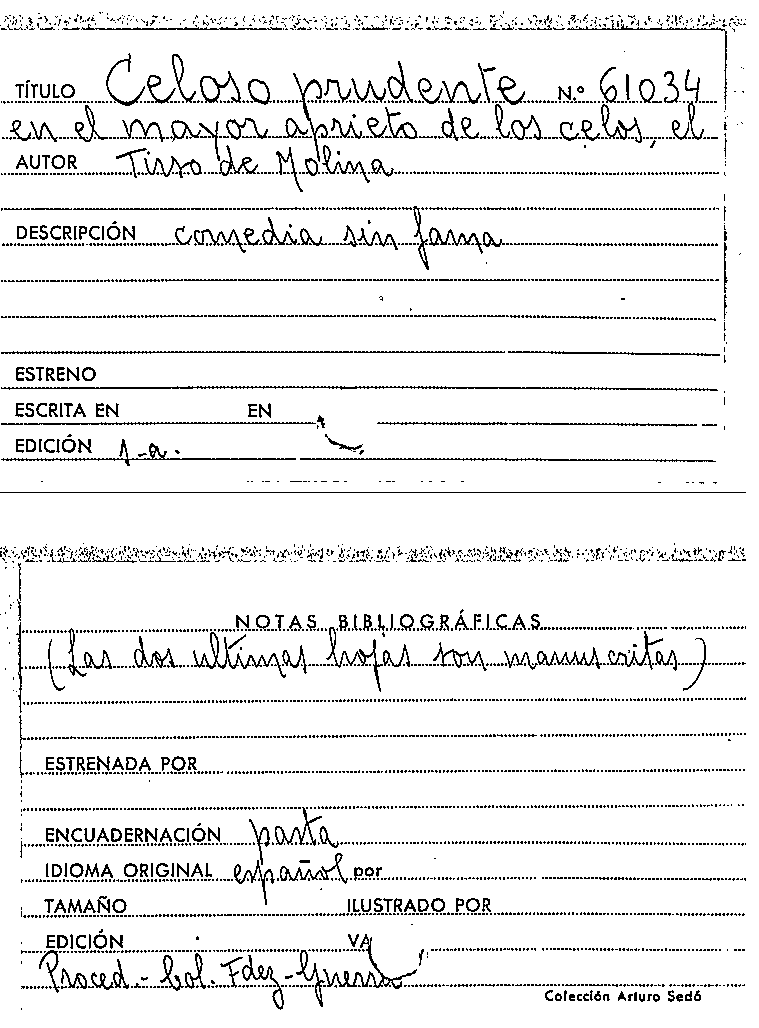 TÍTULO Celoso prudente N.º 61034
en el mayor aprieto de los celos, el
AUTOR Tirso de Molina
DESCRIPCIÓN comedia sin fama
ESTRENO
ESCRITA EN EN
EDICIÓN s-a.
NOTAS BIBLIOGRÁFICAS
(Las dos ultimas hojas son manuscritas)
ESTRENADA POR
ENCUADERNACIÓN pasta
IDIOMA ORIGINAL español por
TAMAÑO ILUSTRADO POR
EDICIÓN VA
Proced.- Col. Fdez-Guerra
Colección Arturo Sedó